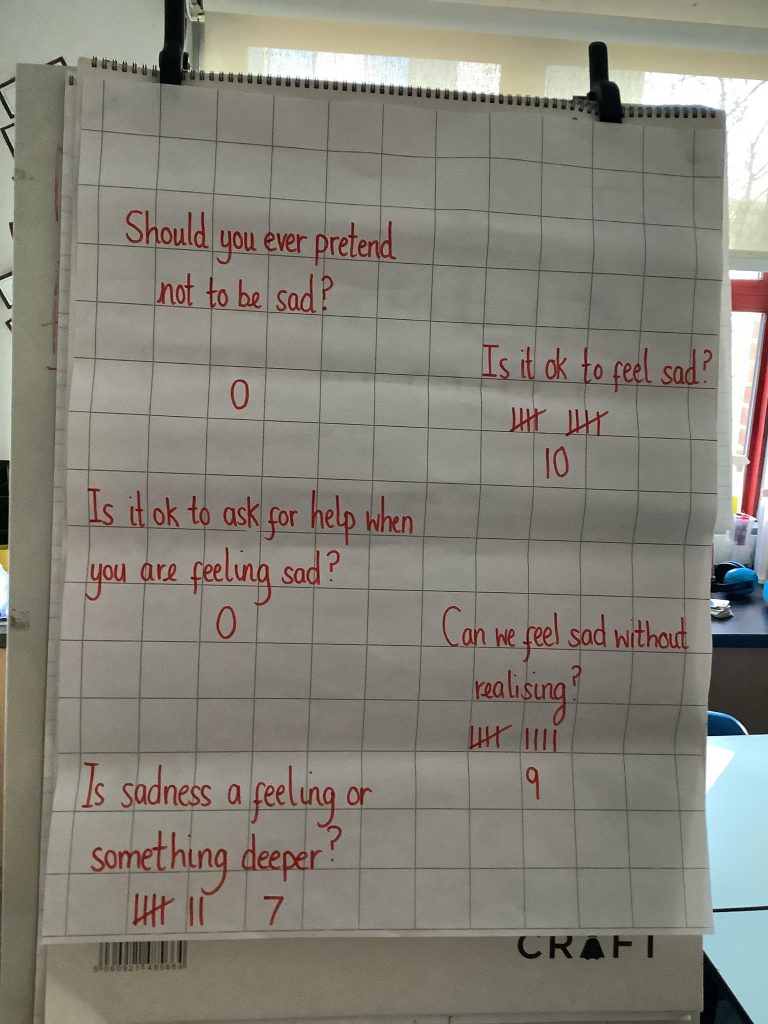 Should you ever pretend
not to be sad?
0
Is it ok to feel sad?
10
Is it ok to ask for help when
you are feeling sad?
0
Can we feel sad without
realising?
9
Is sadness a feeling or
something deeper?
7
CRAFT